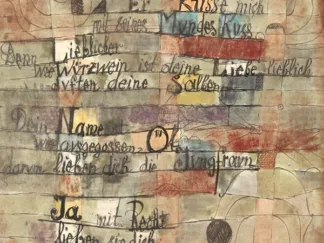 Er Küsse mich
mit seines Mundes Kuss
Denn Lieblicher
wie Würzwein ist deine Liebe lieblich
duften deine Salben
Dein Name
wie ausgegossen Öl
darum lieben dich die Jungfraun
Ja mit Recht
lieben sie dich